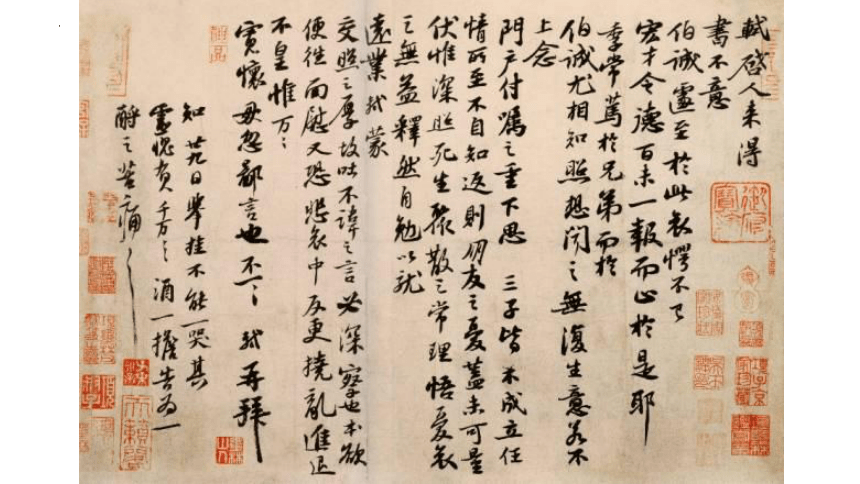 軾啓人来得
書不意
伯誠遽至於此哀愕不已
宏才令德百未一報而止於是耶
季常篤於兄弟而於
伯誠尤相知照想聞之無復生意若不
上念
門户付囑之重下思三子皆不成立任
情所至不自知返則朋友之憂蓋未可量
伏惟深照死生聚散之常理悟憂哀
之無益釋然自勉以就
遠業軾蒙
交照之厚故吐不諱之言必深察也本欲
便往面慰又恐悲哀中反更撓亂進退
不皇惟万〻
寛懷毋忽鄙言也不一〻軾再拜
知廿九日舉挂不能一哭其
靈愧負千万〻酒一擔告爲一
酹之苦痛〻